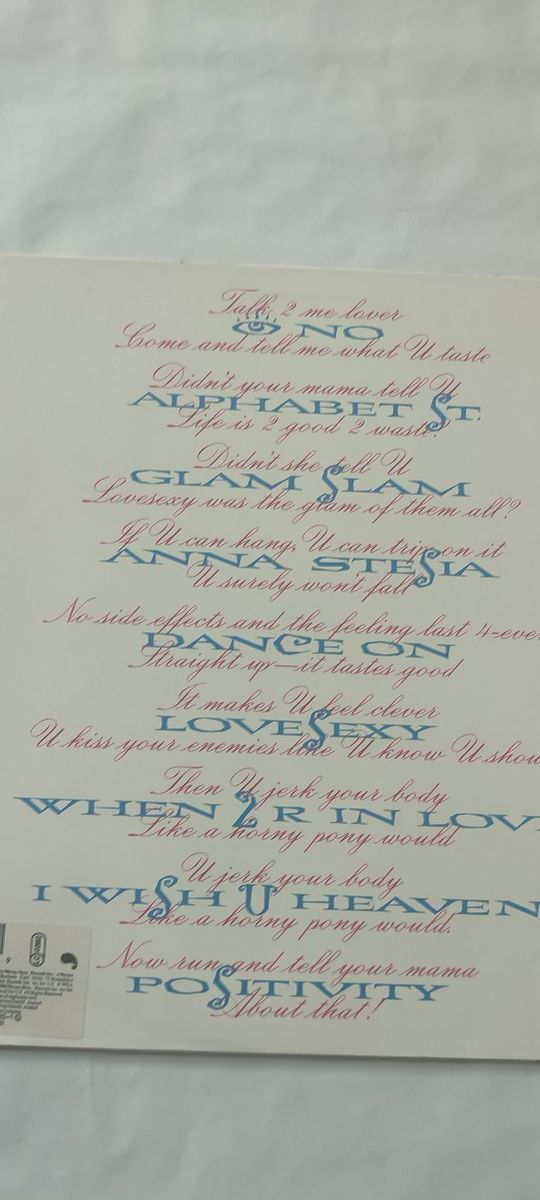 Talk 2 me lover
NO
Come and tell me what U taste
Didn't your mama tell U
ALPHABET ST.
Life is 2 good 2 waste?
Didn't she tell U
GLAM SLAM
Lovesexy was the glam of them all?
If U can hang, U can trip on it
ANNA STESIA
U surely won't fall
No side effects and the feeling last 4-ever
DANCE ON
Straight up—it tastes good
It makes U feel clever
LOVESEXY
U kiss your enemies like U know U shou
Then U jerk your body
WHEN 2 R IN LOV
Like a horny pony would
U jerk your body
I WISH U HEAVEN
Like a horny pony would.
Now run and tell your mama
POSITIVITY
About that!